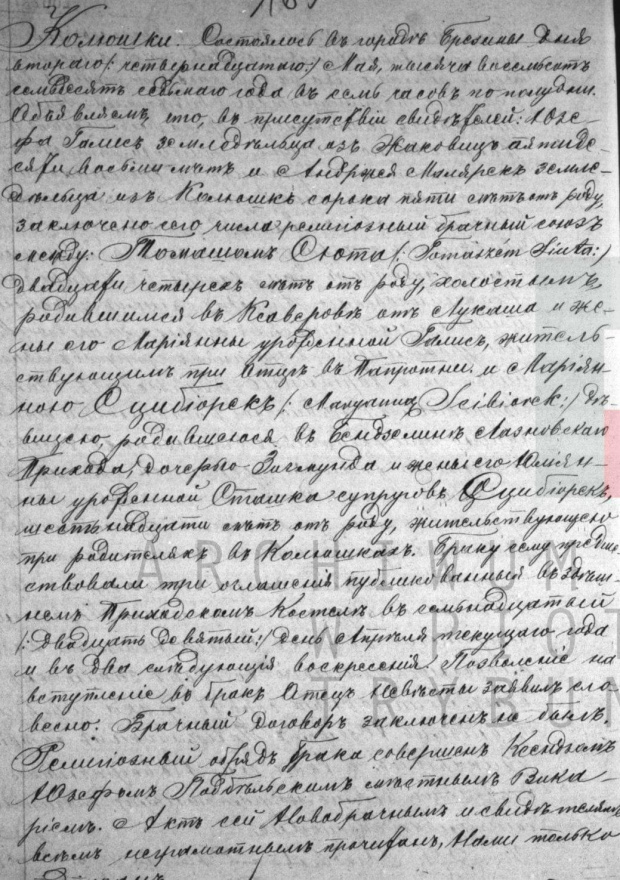 Колюшки. Состоялось въ городѣ Брезины дня
втораго /:четвернадцатаго:/ Мая, тысяча восемьсотъ
семьдесятъ седьмаго года въ семь часовъ по полудни.
Объявляемъ, что, въ присутствіи свидѣтелей: Юзе-
фа Галисъ земледѣльца изъ Жаковицъ пятиде-
сяти восьми лѣтъ и Андржея Малярекъ земле-
дѣльца изъ Колюшкъ сорока пяти лѣтъ отъ роду,
заключено сего числа религіозный брачный союзъ
между: Томашомъ Сюта /:Tomaszem Siuta:/
двадцати четырехъ лѣтъ отъ роду, холостымъ
родившимся въ Ксаверовѣ отъ Лукаша и же-
ны его Маріянны урожденной Галисъ, житель-
ствующимъ при Отцѣ въ Папротни. и Маріян-
ною Сцибіорекъ /:Maryanną Scibiorek:/ дѣ-
вицею, родившеюся въ Бендзелинѣ Лазновскаго
Прихода, дочерью Зигмунда и жены его Юліян-
ны урожденной Сташка супруговъ Сцибіорекъ,
шестьнадцати лѣтъ отъ роду, жительствующею
при родителяхъ въ Колюшкахъ. Браку сему предше-
ствовали три оглашенія публикованныя въ здѣш-
немъ Приходскомъ Костелѣ въ семьнадцатый
/:двадцать девятый:/ день Апрѣля текущаго года
и въ два слѣдующія воскресенія. Позволеніе на
вступленіе въ бракъ Отецъ Невѣсты заявилъ сло-
весно. Брачный договоръ заключенъ не былъ.
Религіозный обрядъ брака совершенъ Ксендзомъ
Юзефомъ Подбѣльскимъ мѣстнымъ Вика-
ріемъ. Актъ сей Новобрачнымъ и свидѣтелямъ
всѣмъ неграмотнымъ прочитанъ, Нами только
ARCHIWUM
W PIOT
TRYBUN